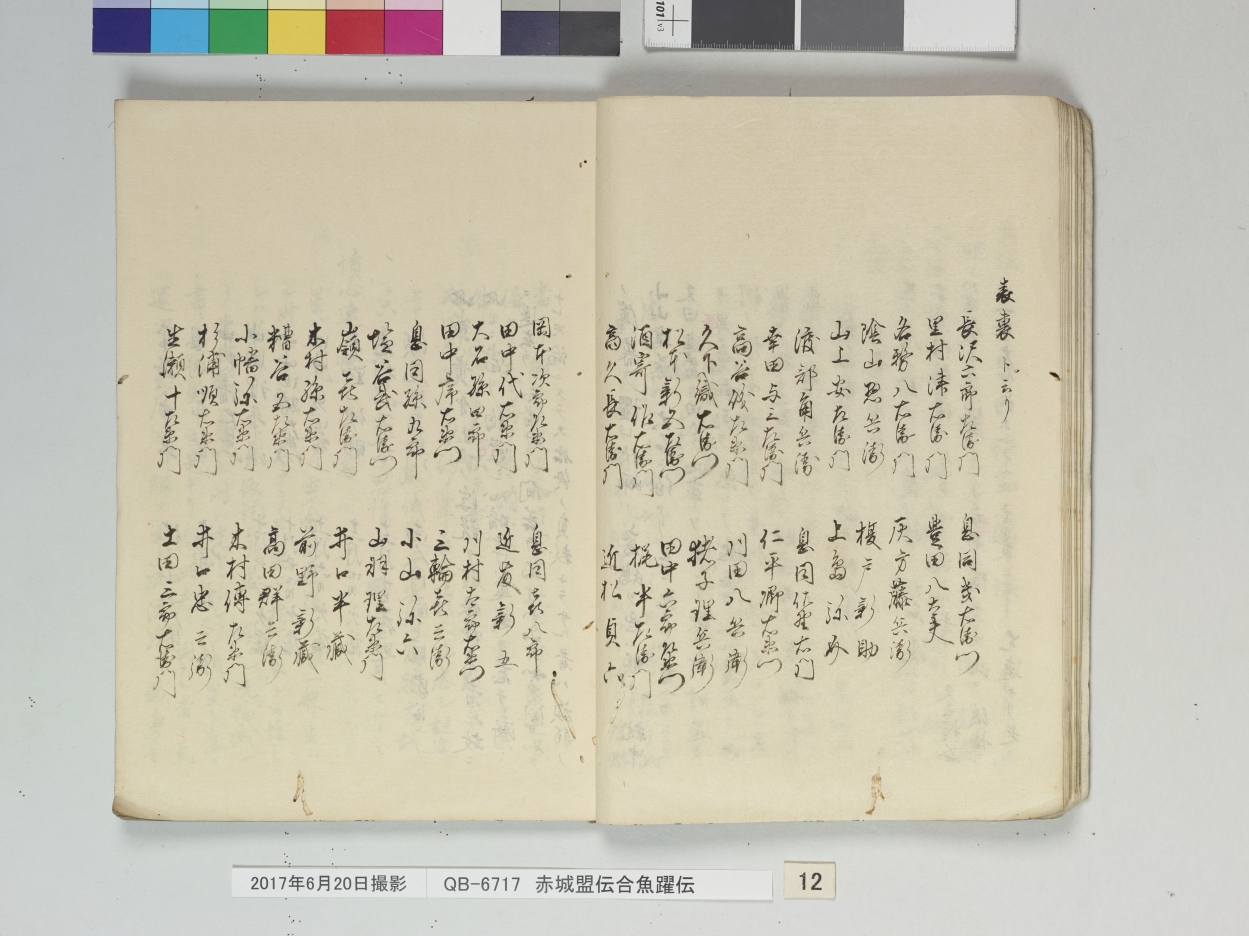 長沢六郎左衛門 息同幾右衛門
里村津右衛門 豊田八太夫
各務八右衛門 灰方藤兵衛
陰山惣兵衛 榎戸新助
山上安左衛門 上島弥助
渡部角兵衛 息同佐野右衛門
幸田与三左衛門 仁平郷右衛門
高谷儀左衛門 川田八兵衛
久下織右衛門 猪子理兵衛
松本新五左衛門 田中六郎左衛門
酒寄作右衛門 梶半左衛門
高久長右衛門 近松貞六
岡本次郎左衛門 息同喜八郎
田中代右衛門 近藤新五
大石孫四郎 川村太郎右衛門
田中序右衛門 三輪喜兵衛
息同孫九郎 小山弥六
塩谷武右衛門 山羽理左衛門
嶺喜左衛門 井口半蔵
木村孫右衛門 前野新蔵
糟谷五左衛門 高田群兵衛
小幡弥右衛門 木村傳左衛門
杉浦順右衛門 井口忠兵衛
生瀬十左衛門 土田三郎右衛門
2017年6月20日撮影 QB-6717 赤城盟伝合魚躍伝 12